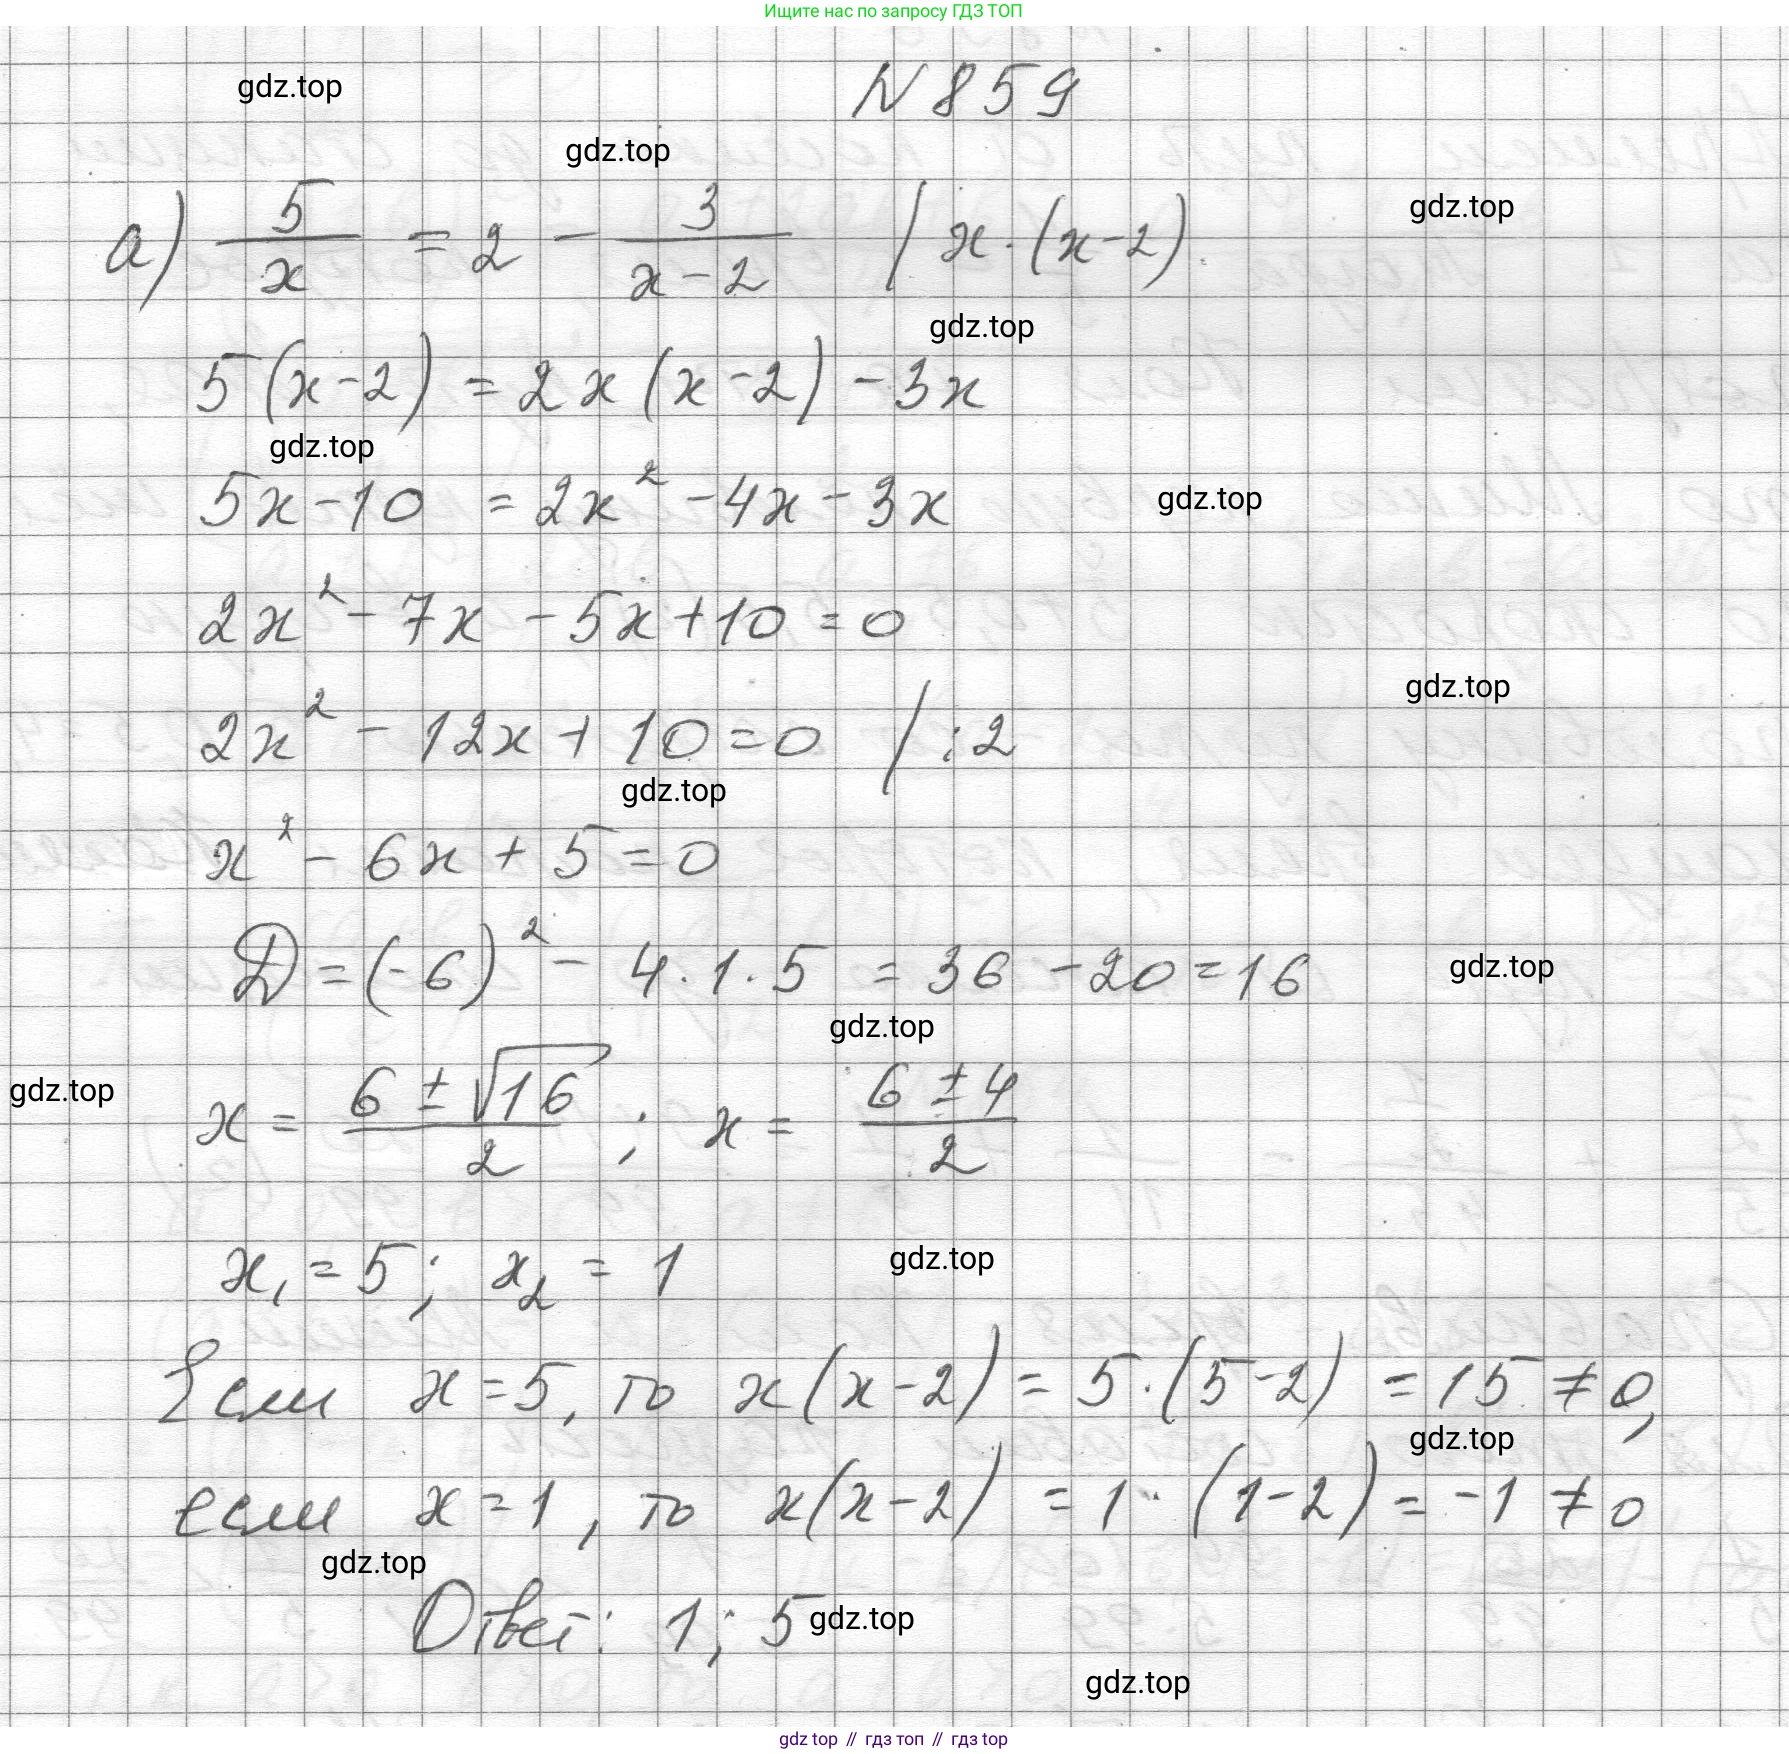 Ищите нас по запросу ГДЗ ТОП
gdz.top
N 859
gdz.top
gdz.top
а) 5/x = 2 - 3/(x-2) | x·(x-2)
gdz.top
5(x-2) = 2x(x-2) - 3x
gdz.top
5x-10 = 2x² - 4x - 3x
gdz.top
2x² - 7x - 5x + 10 = 0
gdz.top
2x² - 12x + 10 = 0 | :2
gdz.top
x² - 6x + 5 = 0
D = (-6)² - 4·1·5 = 36 - 20 = 16
gdz.top
gdz.top
gdz.top
x = (6 ± √16)/2 ; x = (6 ± 4)/2
gdz.top
x₁ = 5; x₂ = 1
Если x = 5, то x(x-2) = 5·(5-2) = 15 ≠ 0,
gdz.top
если x = 1, то x(x-2) = 1·(1-2) = -1 ≠ 0
gdz.top
Ответ: 1; 5
gdz.top
gdz.top
gdz top // гдз топ // гдз top